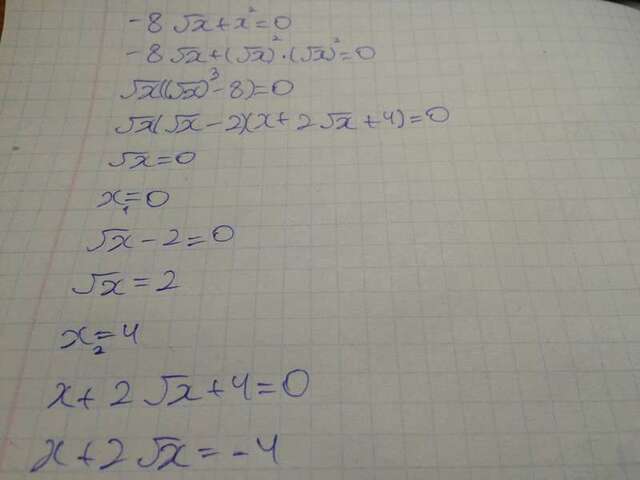 -8√x+x²=0
-8√x+(√x)²·(√x)²=0
√x((√x)³-8)=0
√x(√x-2)(x+2√x+4)=0
√x=0
x₁=0
√x-2=0
√x=2
x₂=4
x+2√x+4=0
x+2√x=-4